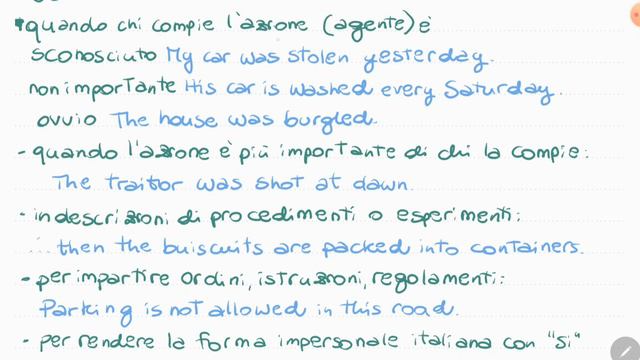 •quando chi compie l'azione (agente) è
sconosciuto My car was stolen yesterday.
non importante His car is washed every Saturday.
ovvio The house was burgled.
- quando l'azione è più importante di chi la compie:
The traitor was shot at dawn.
- in descrizioni di procedimenti o esperimenti:
... then the buiscuits are packed into containers.
- per impartire ordini, istruzioni, regolamenti:
Parking is not allowed in this road.
- per rendere la forma impersonale italiana con "si"